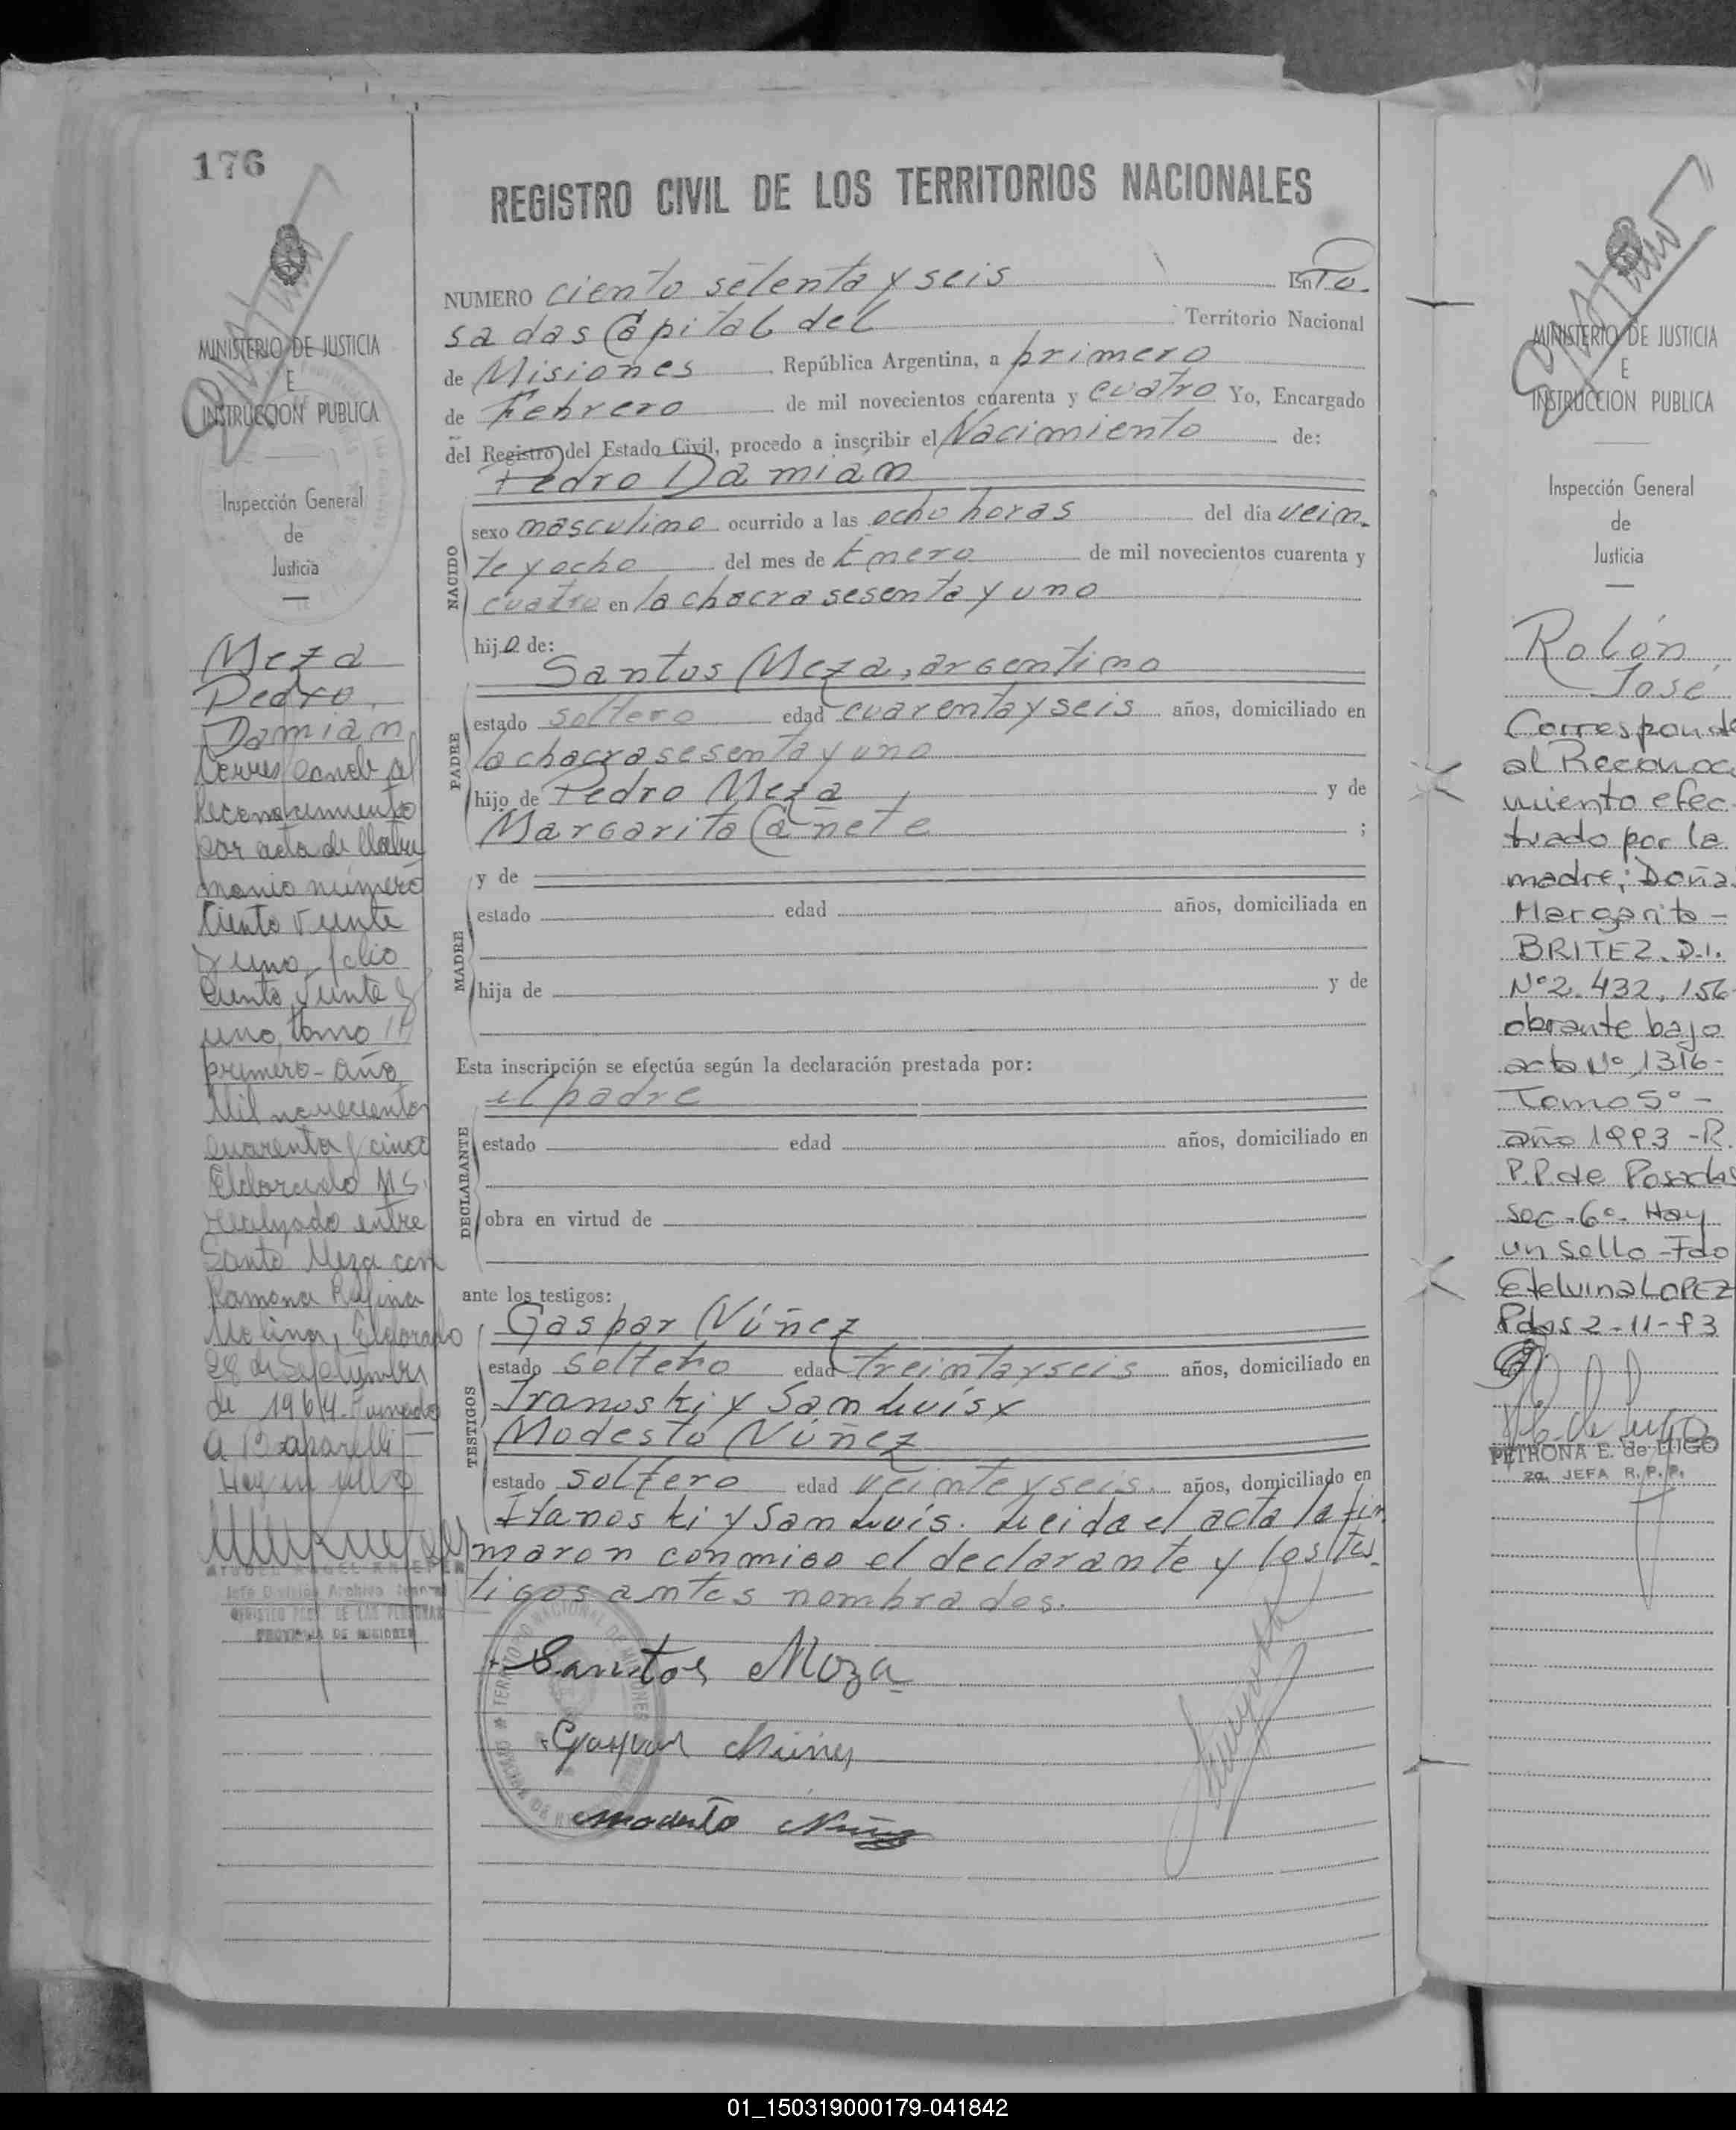 176
REGISTRO CIVIL DE LOS TERRITORIOS NACIONALES
NUMERO ciento setenta y seis En Po-
sadas Capital del Territorio Nacional
de Misiones República Argentina, a primero
de Febrero de mil novecientos cuarenta y cuatro Yo, Encargado
del Registro del Estado Civil, procedo a inscribir el Nacimiento de:
Pedro Damián
NACIDO
sexo masculino ocurrido a las ocho horas del día vein-
te y ocho del mes de Enero de mil novecientos cuarenta y
cuatro en la chacra sesenta y uno
hijo de:
Santos Meza, argentino
PADRE
estado soltero edad cuarenta y seis años, domiciliado en
la chacra sesenta y uno
hijo de Pedro Meza y de
Margarita Cañete ;
MADRE
y de
estado edad años, domiciliada en
hija de y de
Esta inscripción se efectúa según la declaración prestada por:
el padre
DECLARANTE
estado edad años, domiciliado en
obra en virtud de
ante los testigos:
TESTIGOS
Gaspar Núñez
estado soltero edad treinta y seis años, domiciliado en
y San Luis y
Modesto Núñez
estado soltero edad veinte y seis. años, domiciliado en
y San Luis. Leida el acta la fir
maron conmigo el declarante y los tes-
tigos antes nombrados.
Santos Meza
Gaspar Núñez
Modesto Núñez
MINISTERIO DE JUSTICIA
E
INSTRUCCION PUBLICA
Inspección General
de
Justicia
Meza
Pedro
Damian
Corresponde al
Reconocimiento
por acta de Matri
monio número
Ciento Veinte
y uno, folio
Ciento veinte y
uno, tomo 1º
primero - año
Mil novecientos
cuarenta y cinco
Eldorado MS.
realizado entre
Santo Meza con
Ramona Rufina
Molina, Eldorado
28 de Septiembre
de 1964. Firmado
Hay un sello
Jefe División Archivo General
REGISTRO PROV. DE LAS PERSONAS
PROVINCIA DE MISIONES
MINISTERIO DE JUSTICIA
E
INSTRUCCION PUBLICA
Inspección General
de
Justicia
Rolón
José
Corresponde
al Reconoc
miento efec
tuado por la
madre; Doña
Margarita -
BRITEZ. D.I.
Nº 2.432.156
obrante bajo
acta Nº 1316-
Tomo 5º -
año 1993 - R.
P.P. de Posadas
sec. 6º. Hay
un sello - Fdo
Etelvina LOPEZ
Pdas 2-11-93
PETRONA E. de LUGO
2a. JEFA R. P. P.
01_150319000179-041842